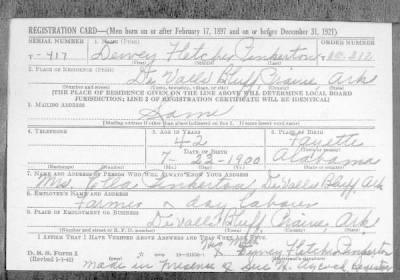 REGISTRATION CARD—(Men born on or after February 17, 1897 and on or before December 31, 1921)
SERIAL NUMBER 1. NAME (Print) ORDER NUMBER
T-417 Dewey Fletcher Pinkerton
(First) (Middle) (Last)
2. PLACE OF RESIDENCE (Print)
De Valls Bluff Prairie Ark
(Number and street) (Town, township, village, or city) (County) (State)
[THE PLACE OF RESIDENCE GIVEN ON THE LINE ABOVE WILL DETERMINE LOCAL BOARD
JURISDICTION; LINE 2 OF REGISTRATION CERTIFICATE WILL BE IDENTICAL]
3. MAILING ADDRESS
Same
[Mailing address if other than place indicated on line 2. If same insert word same]
4. TELEPHONE 5. AGE IN YEARS 6. PLACE OF BIRTH
42 Fayette
DATE OF BIRTH (Town or county)
7-23-1900 Alabama
(Exchange) (Number) (Mo.) (Day) (Yr.) (State or country)
7. NAME AND ADDRESS OF PERSON WHO WILL ALWAYS KNOW YOUR ADDRESS
Mrs Pinkerton De Valls Bluff Ark
8. EMPLOYER'S NAME AND ADDRESS
Farmer & day laborer
9. PLACE OF EMPLOYMENT OR BUSINESS
De Valls Bluff, Prairie, Ark
(Number and street or R. F. D. number) (Town) (County) (State)
I AFFIRM THAT I HAVE VERIFIED ABOVE ANSWERS AND THAT THEY ARE TRUE.
D. S. S. Form 1
(Revised 1-1-42) Dewey Fletcher Pinkerton
made in presence of